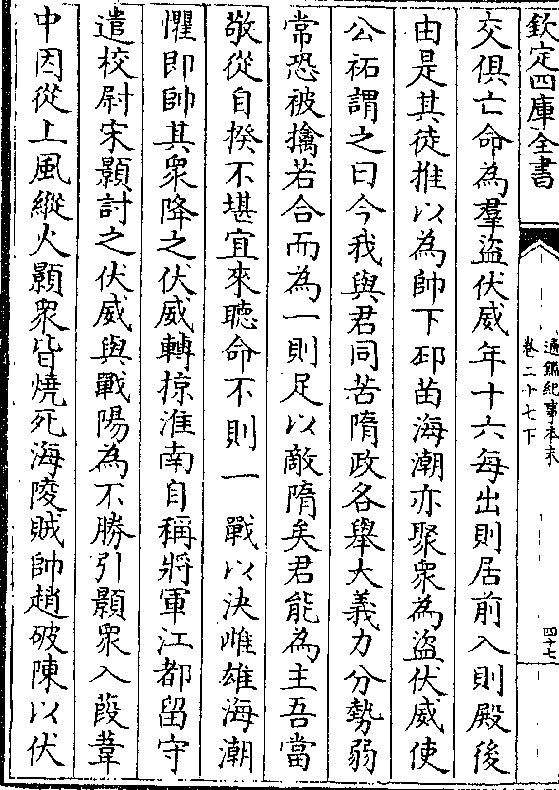 欽定四庫全書
通鑑紀事本末
卷二十七下
四十七
交俱亡命為羣盜伏威年十六每出則居前入則殿後
由是其徒推以為帥下邳苗海潮亦聚衆為盜伏威使
公祏謂之曰今我與君同苦隋政各舉大義力分勢弱
常恐被擒若合而為一則足以敵隋矣君能為主吾當
敬從自揆不堪宜來聽命不則一戰以決雌雄海潮
懼即帥其衆降之伏威轉掠淮南自稱將軍江都留守
遣校尉宋顥討之伏威與戰陽為不勝引顥衆入葭葦
中因從上風縱火顥衆皆燒死海陵賊帥趙破陳以伏